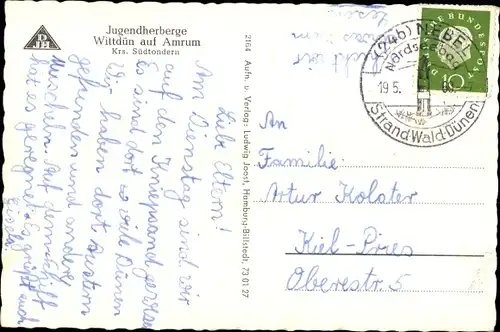 DJH
Jugendherberge
Wittdün auf Amrum
Krs. Südtondern
Liebe Eltern!
Am Dienstag sind wir
auf den Kniepsand gegan
Es sind dort so viele Dünen
Wir haben dort Austern
gefunden und andere
Muscheln. Auf dem Schiff
hat es geregnet. Es grüßt euch
Gisela
2164 Aufn. u. Verlag: Ludwig Joost, Hamburg-Billstedt, 73 01 27
(24b) NEBEL
Nordseebad
19.5.
Strand-Wald-Dünen
DEUTSCHE BUNDESPOST
10
An
Familie
Artur Kolater
Kiel-Pries
Oberestr. 5